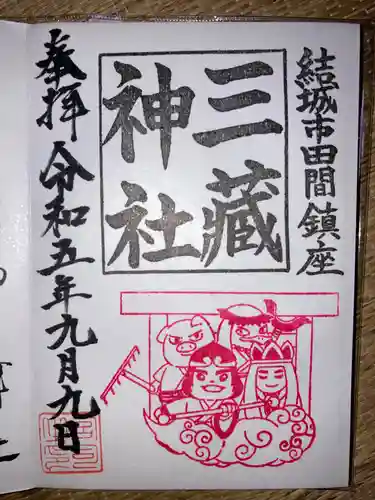 結城市田間鎮座
三藏
神社
奉拝 令和五年九月九日